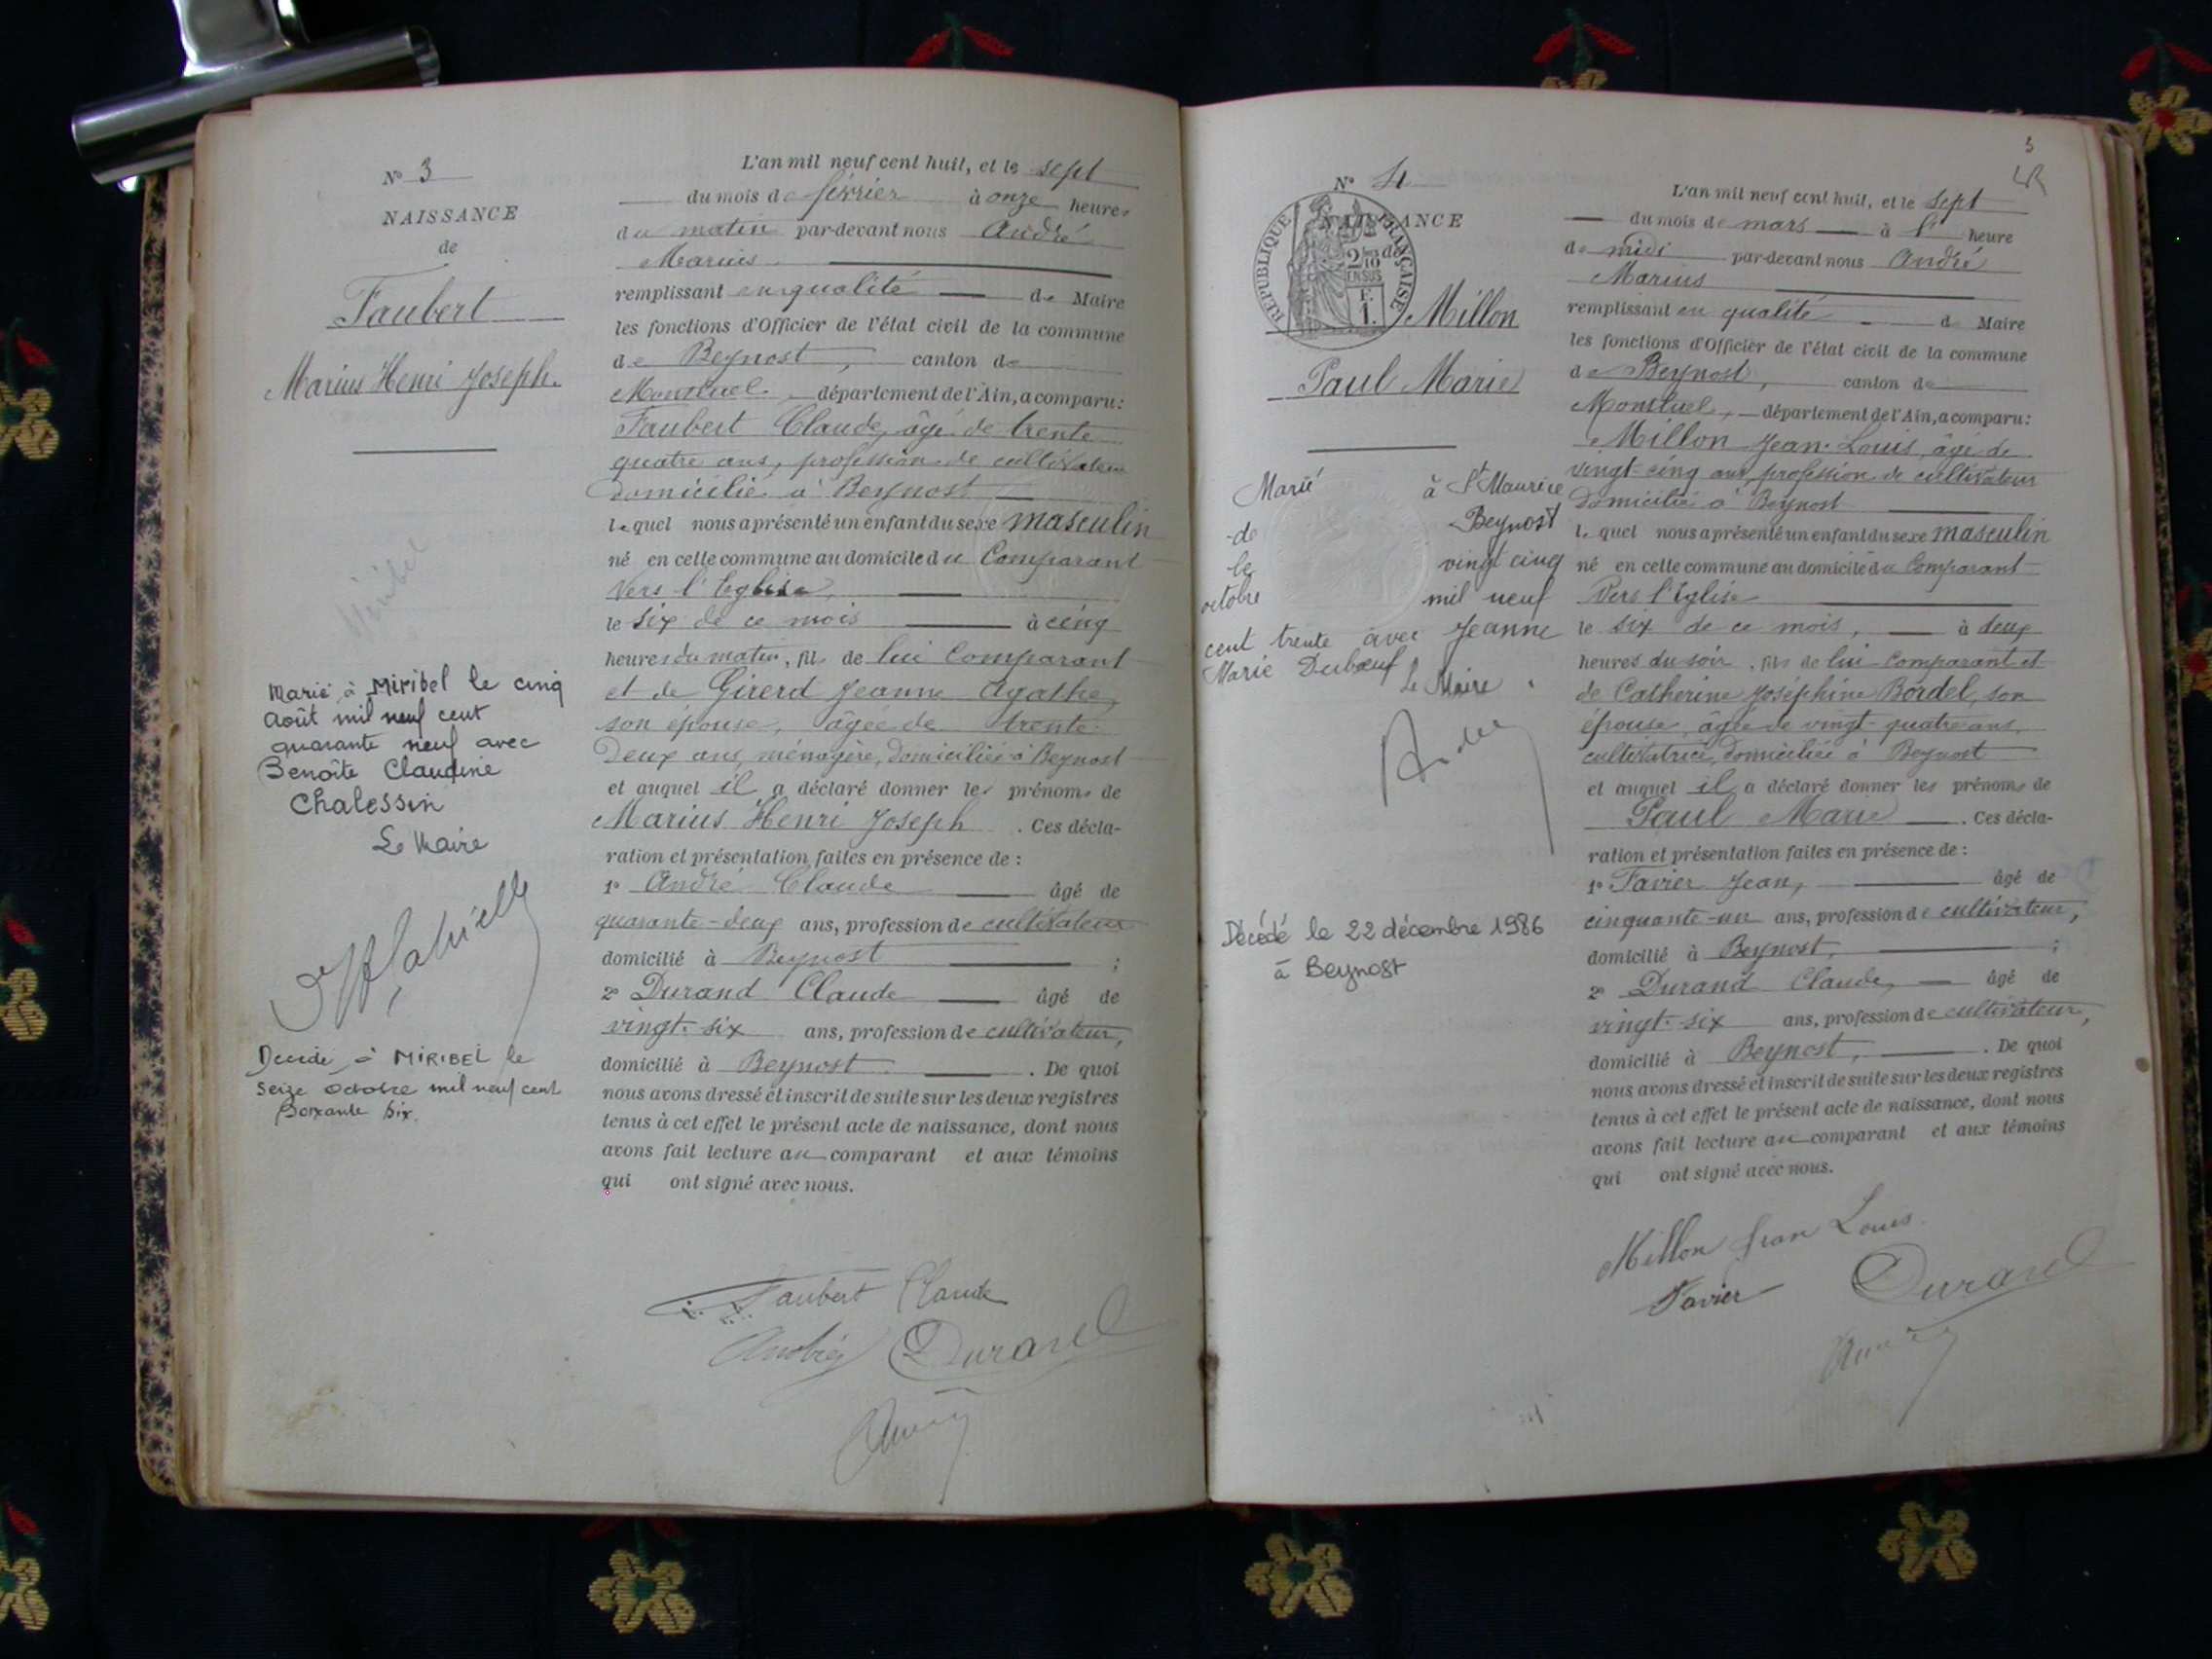 N° 3
NAISSANCE
de
Faubert
Marius Henri Joseph.
Marié à Miribel le cinq
Août mil neuf cent
quarante neuf avec
Benoîte Claudine
Chalessin
Le Maire
Décédé à MIRIBEL le
seize octobre mil neuf cent
soixante six.
L'an mil neuf cent huit, et le sept
du mois de février à onze heures
du matin par-devant nous André
Marius
remplissant en qualité de Maire
les fonctions d'Officier de l'état civil de la commune
de Beynost, canton de
Montluel, département de l'Ain, a comparu:
Faubert Claude, âgé de trente
quatre ans, profession de cultivateur
domicilié à Beynost
lequel nous a présenté un enfant du sexe masculin
né en cette commune au domicile du Comparant
Vers l'Eglise,
le six de ce mois à cinq
heures du matin, fils de lui Comparant
et de Girerd Jeanne Agathe,
son épouse, âgée de trente-
Deux ans, ménagère, domiciliée à Beynost
et auquel il a déclaré donner les prénoms de
Marius Henri Joseph. Ces décla-
ration et présentation faites en présence de :
1° André Claude âgé de
quarante-deux ans, profession de cultivateur
domicilié à Beynost ;
2° Durand Claude âgé de
vingt-six ans, profession de cultivateur,
domicilié à Beynost. De quoi
nous avons dressé et inscrit de suite sur les deux registres
tenus à cet effet le présent acte de naissance, dont nous
avons fait lecture au comparant et aux témoins
qui ont signé avec nous.
Faubert Claude
André Durand
3
N° 4
NAISSANCE
RÉPUBLIQUE FRANÇAISE
2/10 de
EN SUS
F.
1.
Millon
Paul Marie
Marié à St Maurice
de Beynost
le vingt cinq
octobre mil neuf
cent trente avec Jeanne
Marie Duboeuf
Le Maire.
Décédé le 22 décembre 1986
à Beynost
L'an mil neuf cent huit, et le sept
du mois de mars à heure
de midi par-devant nous André
Marius
remplissant en qualité de Maire
les fonctions d'Officier de l'état civil de la commune
de Beynost, canton de
Montluel, département de l'Ain, a comparu:
Millon Jean-Louis, âgé de
vingt-cinq ans, profession de cultivateur
domicilié à Beynost
lequel nous a présenté un enfant du sexe masculin
né en cette commune au domicile du Comparant
Vers l'Eglise
le six de ce mois, à deux
heures du soir, fils de lui Comparant et
de Catherine Joséphine Bordel, son
épouse, âgée de vingt-quatre ans,
cultivatrice, domiciliée à Beynost
et auquel il a déclaré donner les prénoms de
Paul Marie. Ces décla-
ration et présentation faites en présence de :
1° Favier Jean, âgé de
cinquante-un ans, profession de cultivateur,
domicilié à Beynost, ;
2° Durand Claude, âgé de
vingt-six ans, profession de cultivateur,
domicilié à Beynost,. De quoi
nous avons dressé et inscrit de suite sur les deux registres
tenus à cet effet le présent acte de naissance, dont nous
avons fait lecture au comparant et aux témoins
qui ont signé avec nous.
Millon Jean Louis
Favier Durand